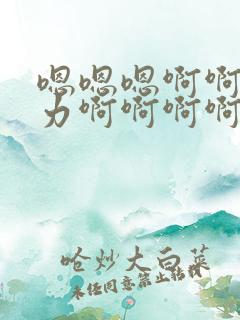 嗯嗯嗯啊啊
力啊啊啊啊
呛炒大白菜
未经同意禁止转载